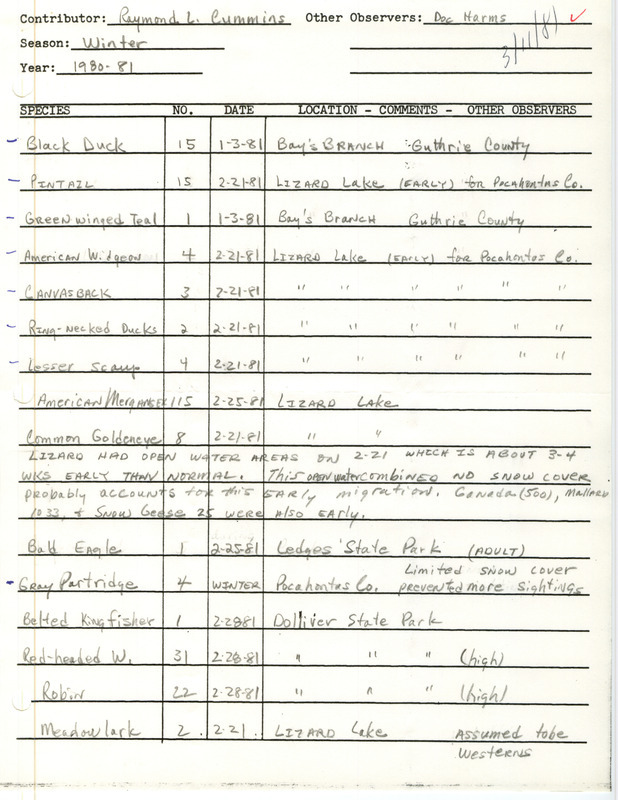 Contributor: Raymond L. Cummins Other Observers: Doc Harms
3/11/81
Season: Winter
Year: 1980-81
SPECIES NO. DATE LOCATION - COMMENTS - OTHER OBSERVERS
Black Duck 15 1-3-81 Bay's Branch Guthrie County
Pintail 15 2-21-81 Lizard Lake (early) for Pocahontas Co.
Green winged Teal 1 1-3-81 Bay's Branch Guthrie County
American Widgeon 4 2-21-81 Lizard Lake (early) for Pocahontas Co.
Canvasback 3 2-21-81 " " " " " "
Ring-necked Ducks 2 2-21-81 " " " " " "
Lesser Scaup 4 2-21-81 " " " " " "
American Merganser 115 2-25-81 Lizard Lake
Common Goldeneye 8 2-21-81 " "
Lizard had open water areas on 2-21 which is about 3-4
wks early than normal. This open water combined no snow cover
probably accounts for this early migration. Canada (500), Mallard
1033, + Snow Geese 25 were also early.
Bald Eagle 1 2-25-81 Ledges State Park (Adult)
Limited snow cover
Gray Partridge 4 Winter Pocahontas Co. prevented more sightings
Belted Kingfisher 1 2-28-81 Dolliver State Park
Red-headed W. 31 2-28-81 " " " (high)
Robin 22 2-28-81 " " " (high)
Meadowlark 2 2-21 Lizard Lake Assumed to be
Westerns